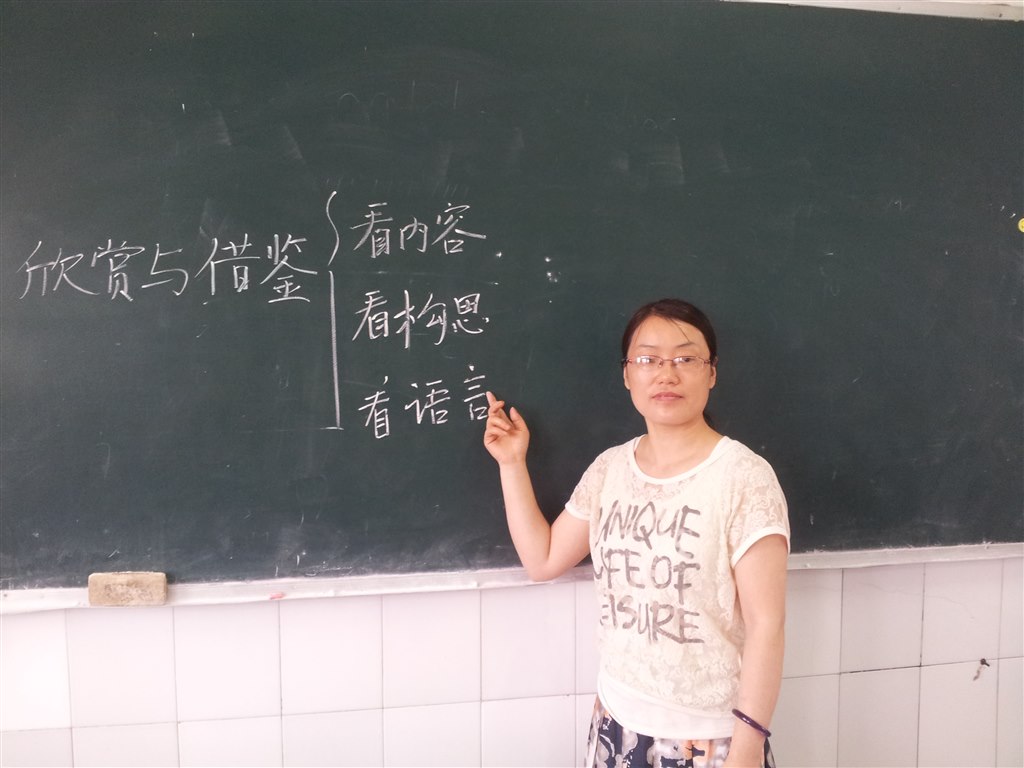 欣赏与借鉴
看内容
看构思
看语言
UNIQUE
LIFE OF
LEISURE